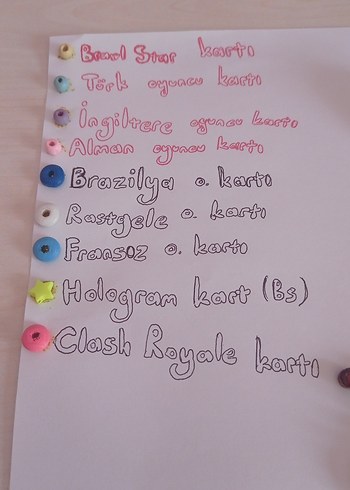 Brawl Star kartı
Türk oyuncu kartı
İngiltere oyuncu kartı
Alman oyuncu kartı
Brazilya o. kartı
Rastgele o. kartı
Fransız o. kartı
Hologram kart (Bs)
Clash Royale kartı